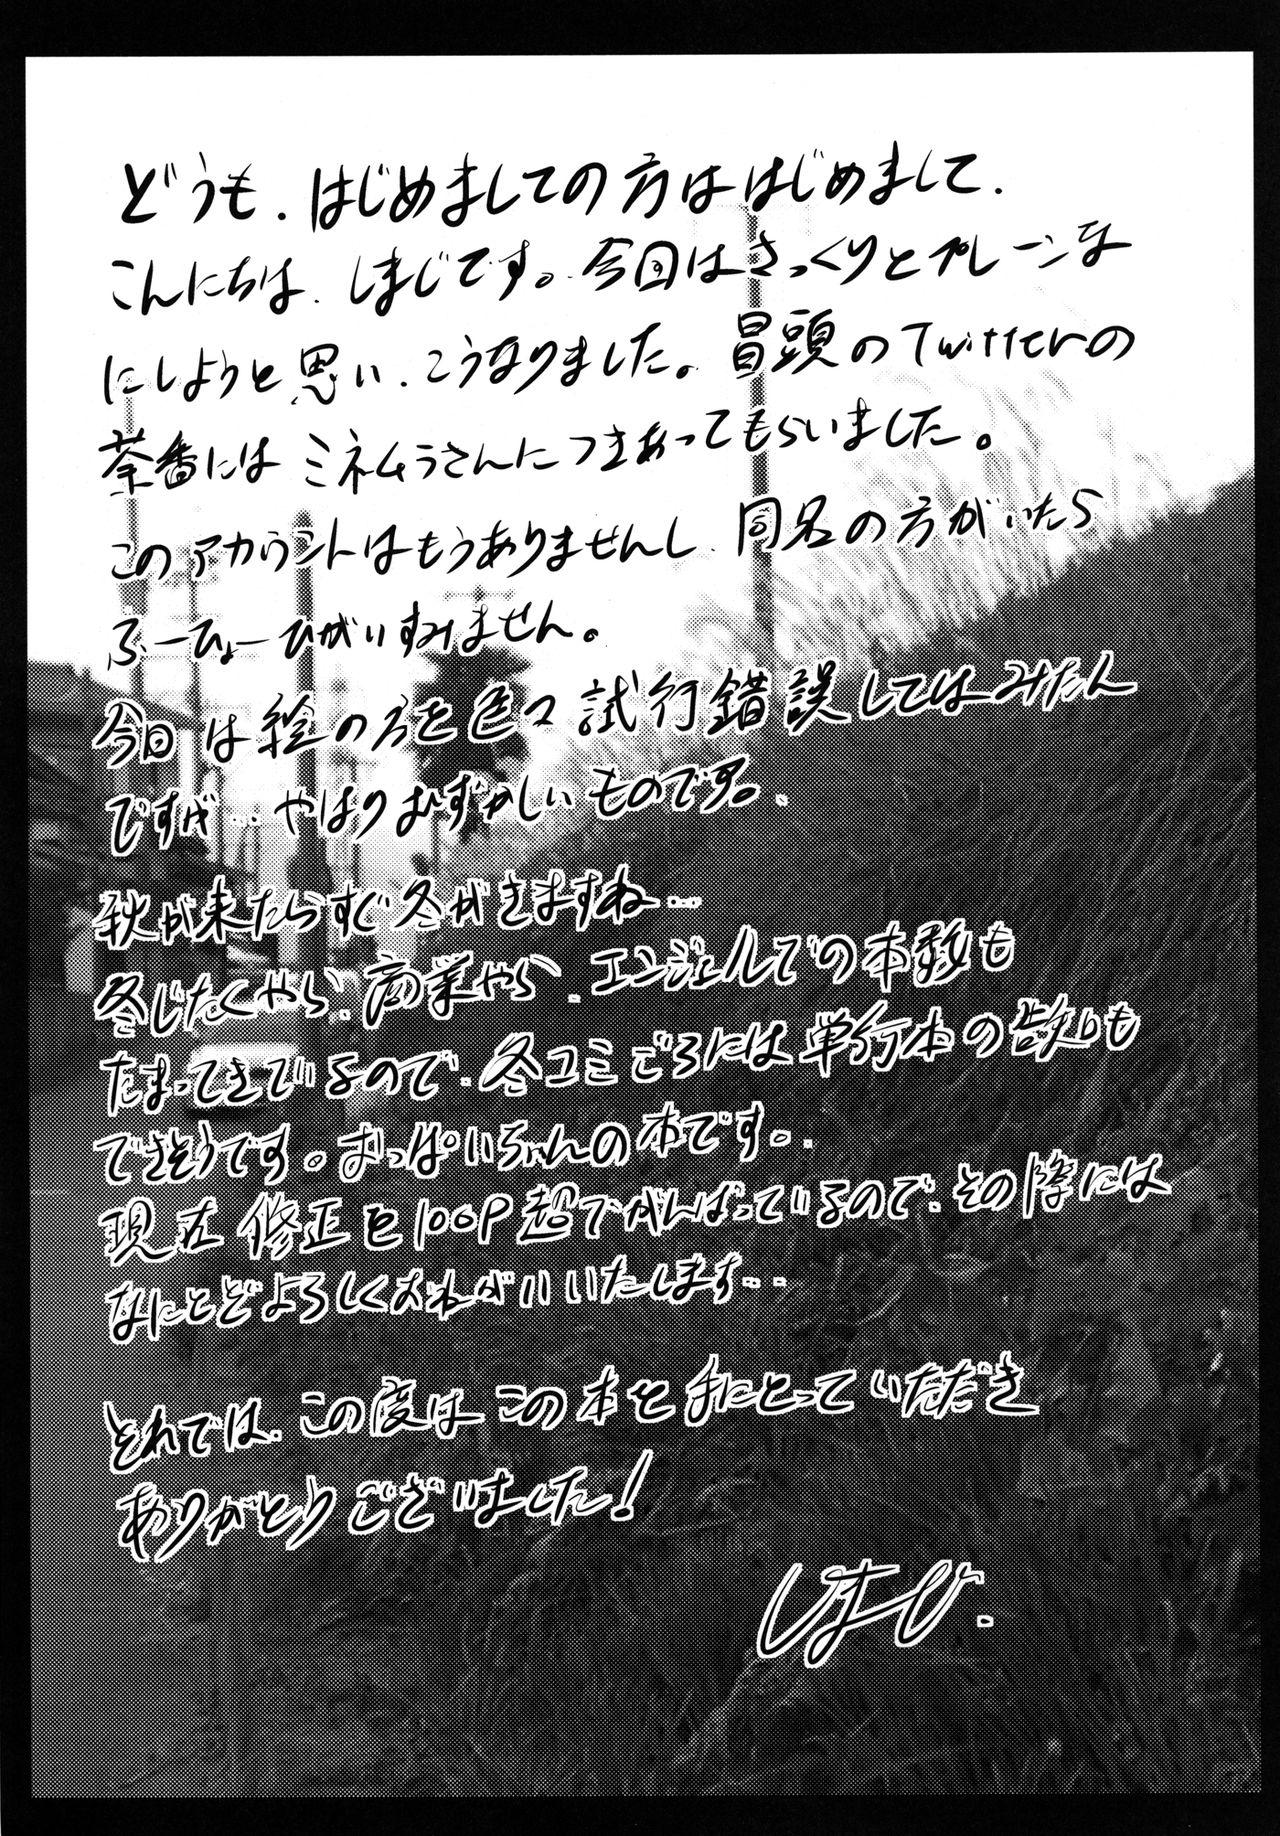 どうも、はじめましての方ははじめまして、
こんにちは、しまじです。今回はさっくりとプレーンな
にしようと思い、こうなりました。冒頭のTwitterの
茶番にはミネムラさんにつきあってもらいました。
このアカウントはもうありませんし、同名の方がいたら
ふーひょーひがいすみません。
今回は絵の方を色々試行錯誤してはみたん
ですが…やはりむずかしいものです。
秋が来たらすぐ冬がきますね…
冬じたくやら、商業やら、エンジェルでの本数も
たまってきているので、冬コミごろには単行本の告知も
できそうです。おっぱいちゃんの本です。
現在修正を100P超でがんばっているので、その際には
なにとぞよろしくおねがいいたします…
それでは、この度はこの本を手にとっていただき
ありがとうございました!
しまじ.